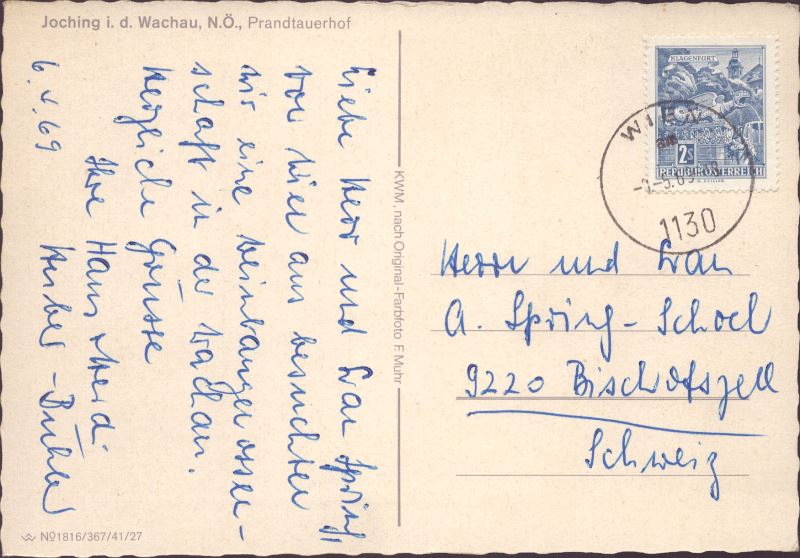 Joching i. d. Wachau, N.Ö., Prandtauerhof
Liebe Herr und Frau Spring!
Von hier aus besuchten
wir eine Weinbaugenossen-
schaft in der Wachau.
Herzliche Grüsse
Ihre Hans Heidi
Huber-Bühler
6.5.69
KWM, nach Original-Farbfoto F. Muhr
KLAGENFURT
2S
REPUBLIK ÖSTERREICH
WIEN
1130
Herrn und Frau
A. Spring-Schoch
9220 Bischofszell
Schweiz
No1816/367/41/27